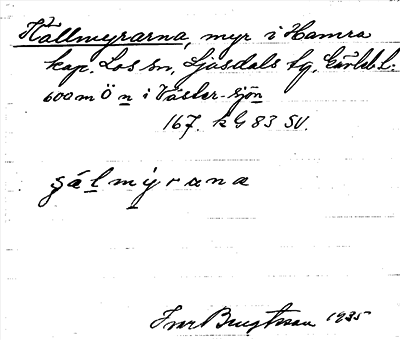 Källmyrarna, myr i Hamra
kap. Los sn, Ljusdals tg, Gävleb. l.
600 m Ö n i Väster-sjön
167. k G 83 SV.
sálmýrana
Ivar Bengtsson 1935